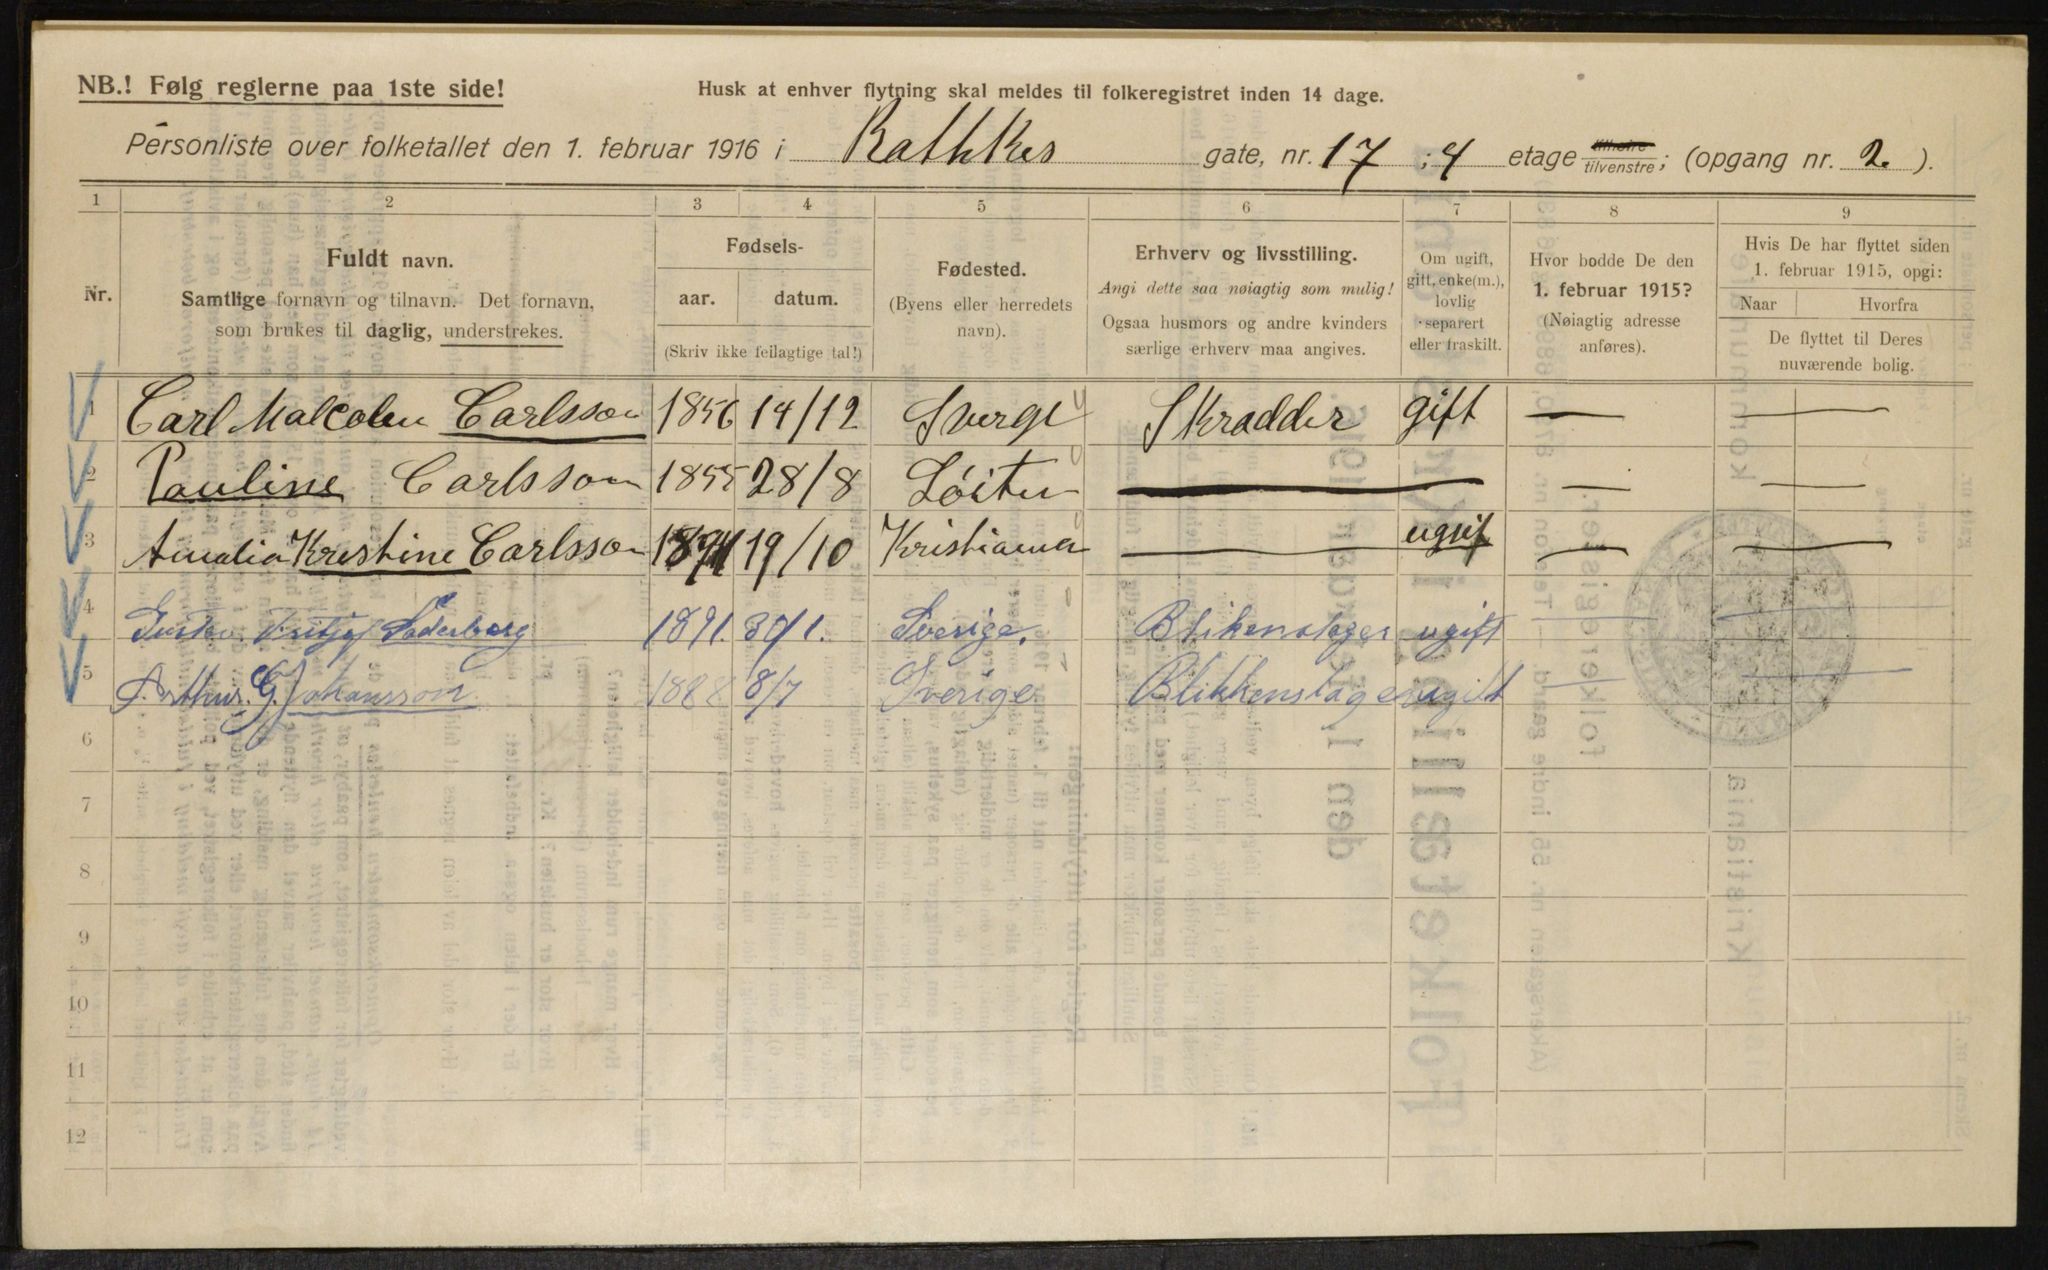 NB.! Følg reglerne paa 1ste side!
Husk at enhver flytning skal meldes til folkeregistret inden 14 dage.
Personliste over folketallet den 1. februar 1916 i Rathkes gate, nr. 17 ; 4 etage tilhøire tilvenstre; (opgang nr. 2. ).
1 2 3 4 5 6 7 8 9
Nr.
Fuldt navn.
Samtlige fornavn og tilnavn. Det fornavn,
som brukes til daglig, understrekes.
Fødsels-
aar. datum.
(Skriv ikke feilagtige tal!)
Fødested.
(Byens eller herredets
navn).
Erhverv og livsstilling.
Angi dette saa nøiagtig som mulig!
Ogsaa husmors og andre kvinders
særlige erhverv maa angives.
Om ugift,
gift, enke(m.),
lovlig
separert
eller fraskilt.
Hvor bodde De den
1. februar 1915?
(Nøiagtig adresse
anføres).
Hvis De har flyttet siden
1. februar 1915, opgi:
Naar Hvorfra
De flyttet til Deres
nuværende bolig.
1 Carl Malcolm Carlsson 1856 14/12 Sverge Skradder gift — —
2 Pauline Carlsson 1855 28/8 Löiten — — —
3 Amalia Kristine Carlsson 19/10 Kristiania — ugift — —
4 Gustav Fritjof Söderberg 1891. 30/1. Sverige. Blikenslager ugift — —
5 Arthur. G. Johansson 1888 8/7 Sverige Blikkenslager ugift — —
6
7
8
9
10
11
12